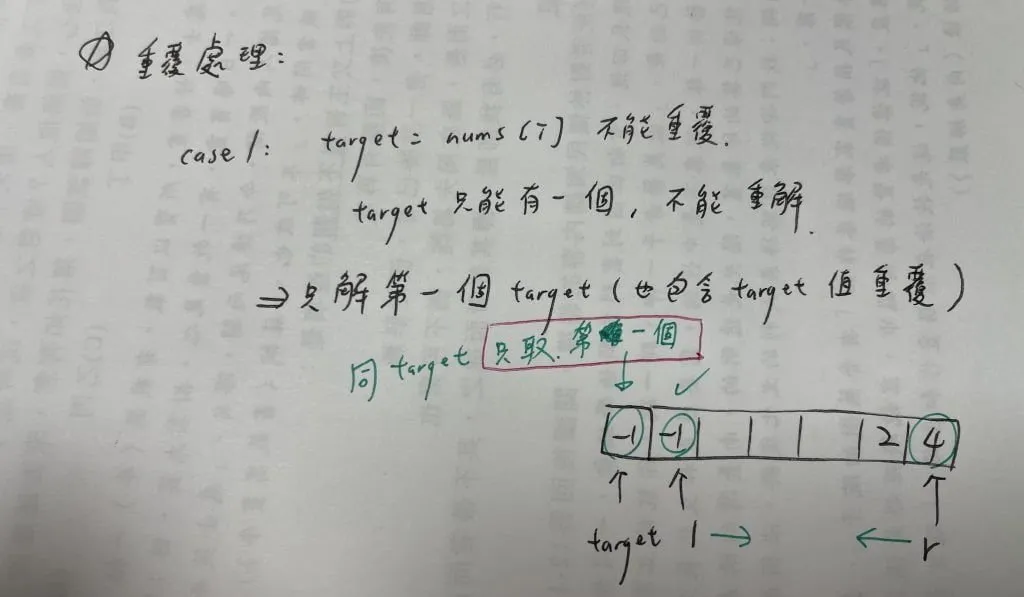 ① 重覆處理:
case 1: target = nums [i] 不能重覆.
target 只能有一個, 不能重解.
⇒ 只解第一個 target (也包含 target 值重覆)
同 target 只取.第一個
↓ ✓
-1 -1 2 4
↑ ↑ ↑
target l → ← r